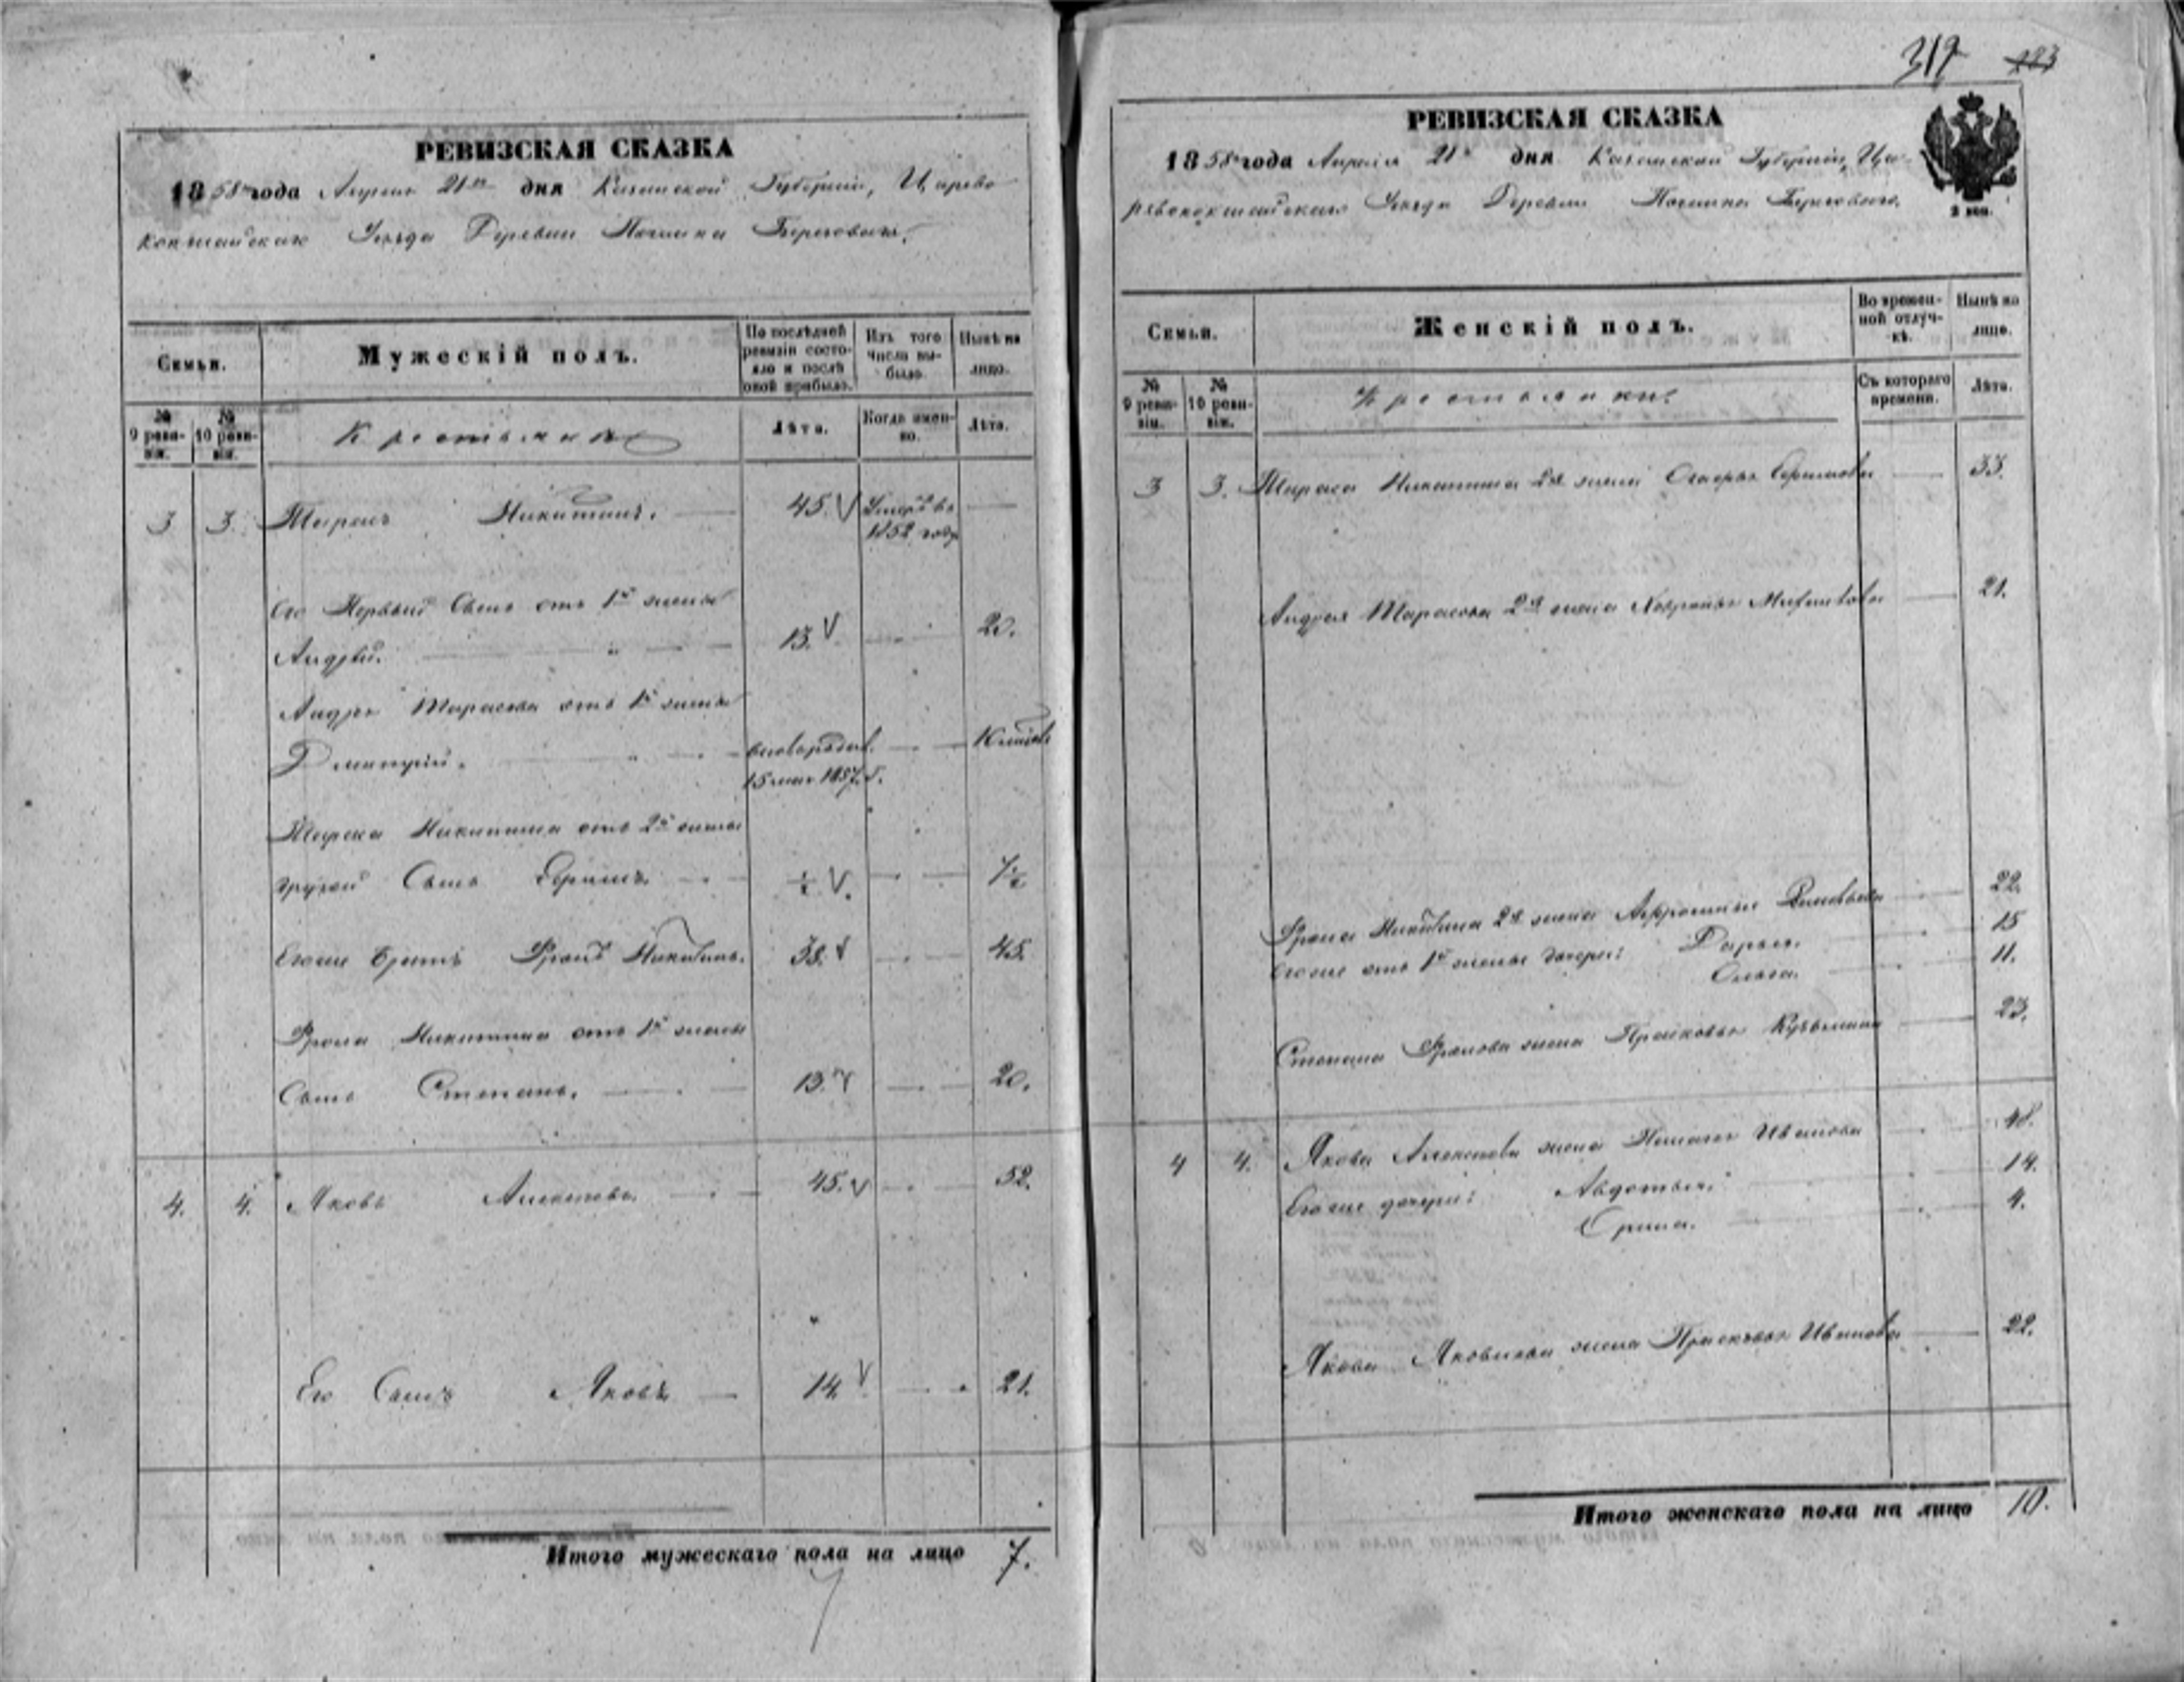 РЕВИЗСКАЯ СКАЗКА
1858 года Апреля 21 дня Казанской Губерніи, Царево
кокшайскаго Уезда Деревни Починка
Семьи.
Мужескій полъ.
По послѣдней ревизіи состояло и послѣ оной прибыло.
Изъ того числа выбыло.
Нынѣ на лицо.
№ 9 ревизіи.
№ 10 ревизіи.
Крестьяне
Лѣта.
Когда именно.
Лѣта.
3 3. Тарасъ Никитинъ. 45. Умеръ въ
1852 году
Его Первый Сынъ отъ 1й жены
Андрей. 13. 20.
Андрея Тарасова отъ 1й жены
Дмитрій.
15 1857. г.
Тараса Никитина отъ 2й жены
другой Сынъ Ефимъ ½. 7½
Егоже Братъ Фролъ Никитинъ. 38. 45.
Фрола Никитина отъ 1й жены
Сынъ Степанъ. 13. 20.
4. 4. Яковъ Алексѣевъ 45. 52.
Его Сынъ Яковъ 14 21.
Итого мужескаго пола на лицо 7.
317 183
РЕВИЗСКАЯ СКАЗКА
1858 года Апреля 21 дня Казанской Губерніи, Ца-
ревококшайскаго Уезда Деревни Починка
2 коп.
Семьи.
Женскій полъ.
Во времен-
ной отлуч-
кѣ.
Нынѣ на
лицо.
№ 9 ревизіи.
№ 10 ревизіи.
Крестьянки.
Съ котораго
времени.
Лѣта.
3 3. Тараса Никитина 2я жена 33.
Андрея Тарасова 2я жена 21.
Фрола Никитина 2я жена 22.
Егоже отъ 1й жены дочери: Дарья. 15
Ольга. 11.
Степана Фролова жена Прасковья Кузьмина 23.
4 4. Якова Алексѣева жена Иванова 48.
Егоже дочери: Авдотья. 14.
Орина. 4.
Якова Яковлева жена Прасковья Иванова 22.
Итого женскаго пола на лицо 10.